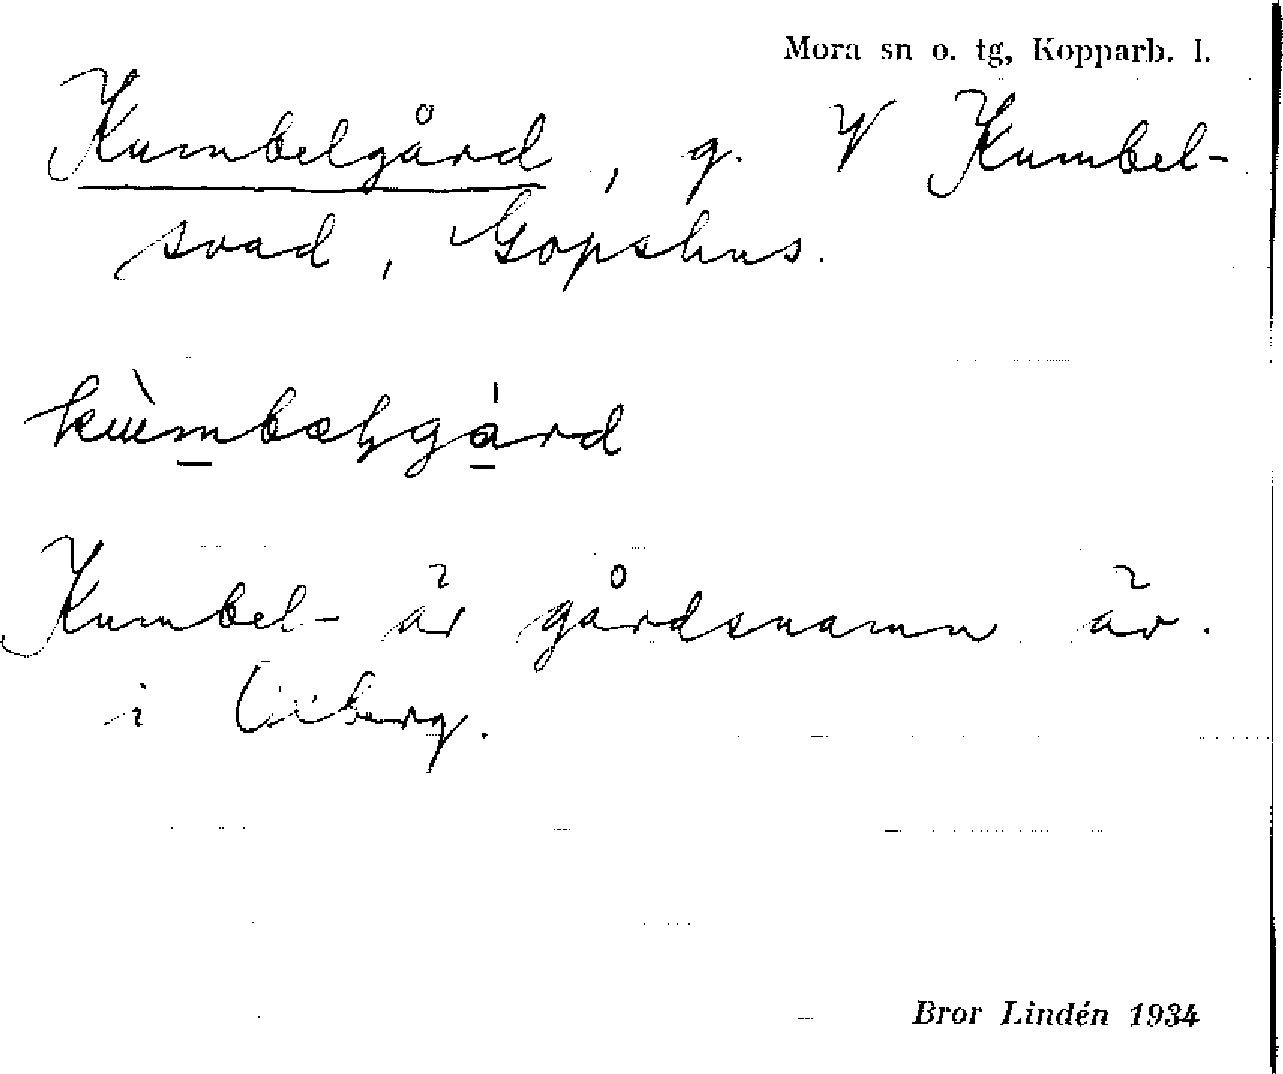 Mora sn o. tg, Kopparb. l.
Kumbelgård, g. V Kumbel-
svad, Gopshus.
kùmbəlgárd
Kumbel- är gårdsnamn äv.
i
Bror Lindén 1934